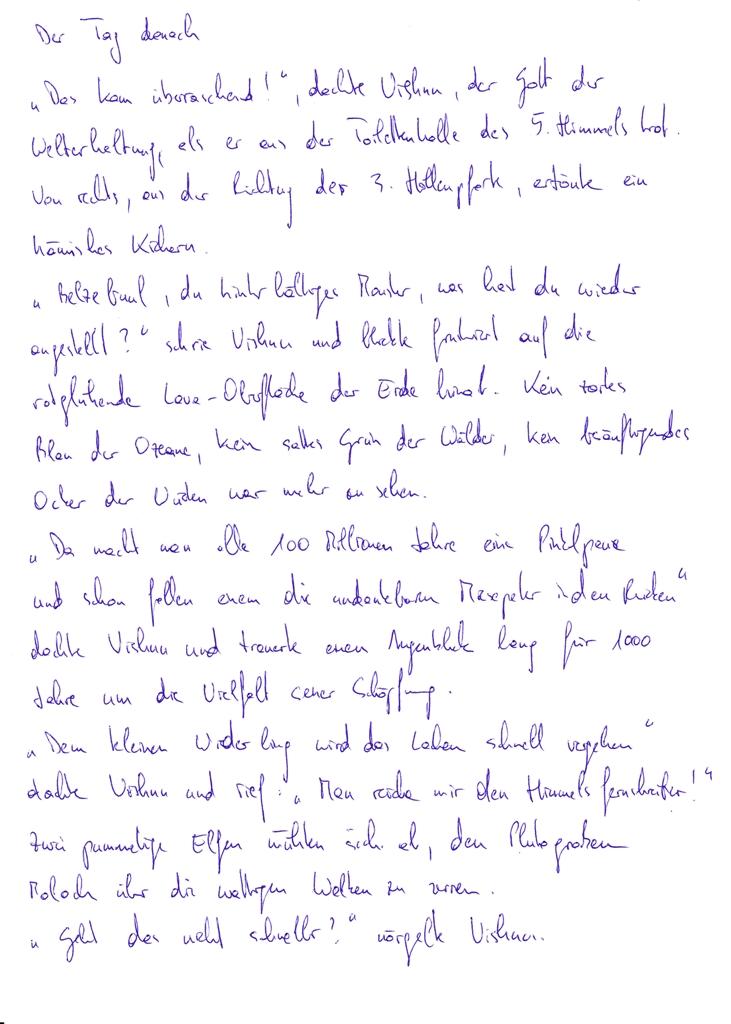 Der Tag danach
„Das kam überraschend!“, dachte Vishnu, der Gott der
Welterhaltung, als er aus der Toilettenhalle des 5. Himmels trat.
Von rechts, aus der Richtung der 3. Höllenpforte, ertönte ein
hämisches Kichern.
„Belzebuul, du hinterhältiges Monster, was hast du wieder
angestellt?“ schrie Vishnu und blickte frustriert auf die
rotglühende Lava-Oberfläche der Erde hinab. Kein zartes
Blau der Ozeane, kein sattes Grün der Wälder, kein
Ocker der Wüsten war mehr zu sehen.
„Da macht man alle 100 Millionen Jahre eine Pinkelpause
und schon fallen einem die undankbaren in den Rücken“
dachte Vishnu und trauerte einen Augenblick lang für 1000
Jahre um die Vielfalt seiner Schöpfung.
„Dem kleinen Widerling wird das Lachen schnell vergehen“
dachte Vishnu und rief: „Man reiche mir den Himmelsfernschreiber!“
Zwei pummelige Elfen mühten sich ab, den
Moloch über die wattigen Wolken zu zerren.
„Geht das nicht schneller?“ nörgelte Vishnu.